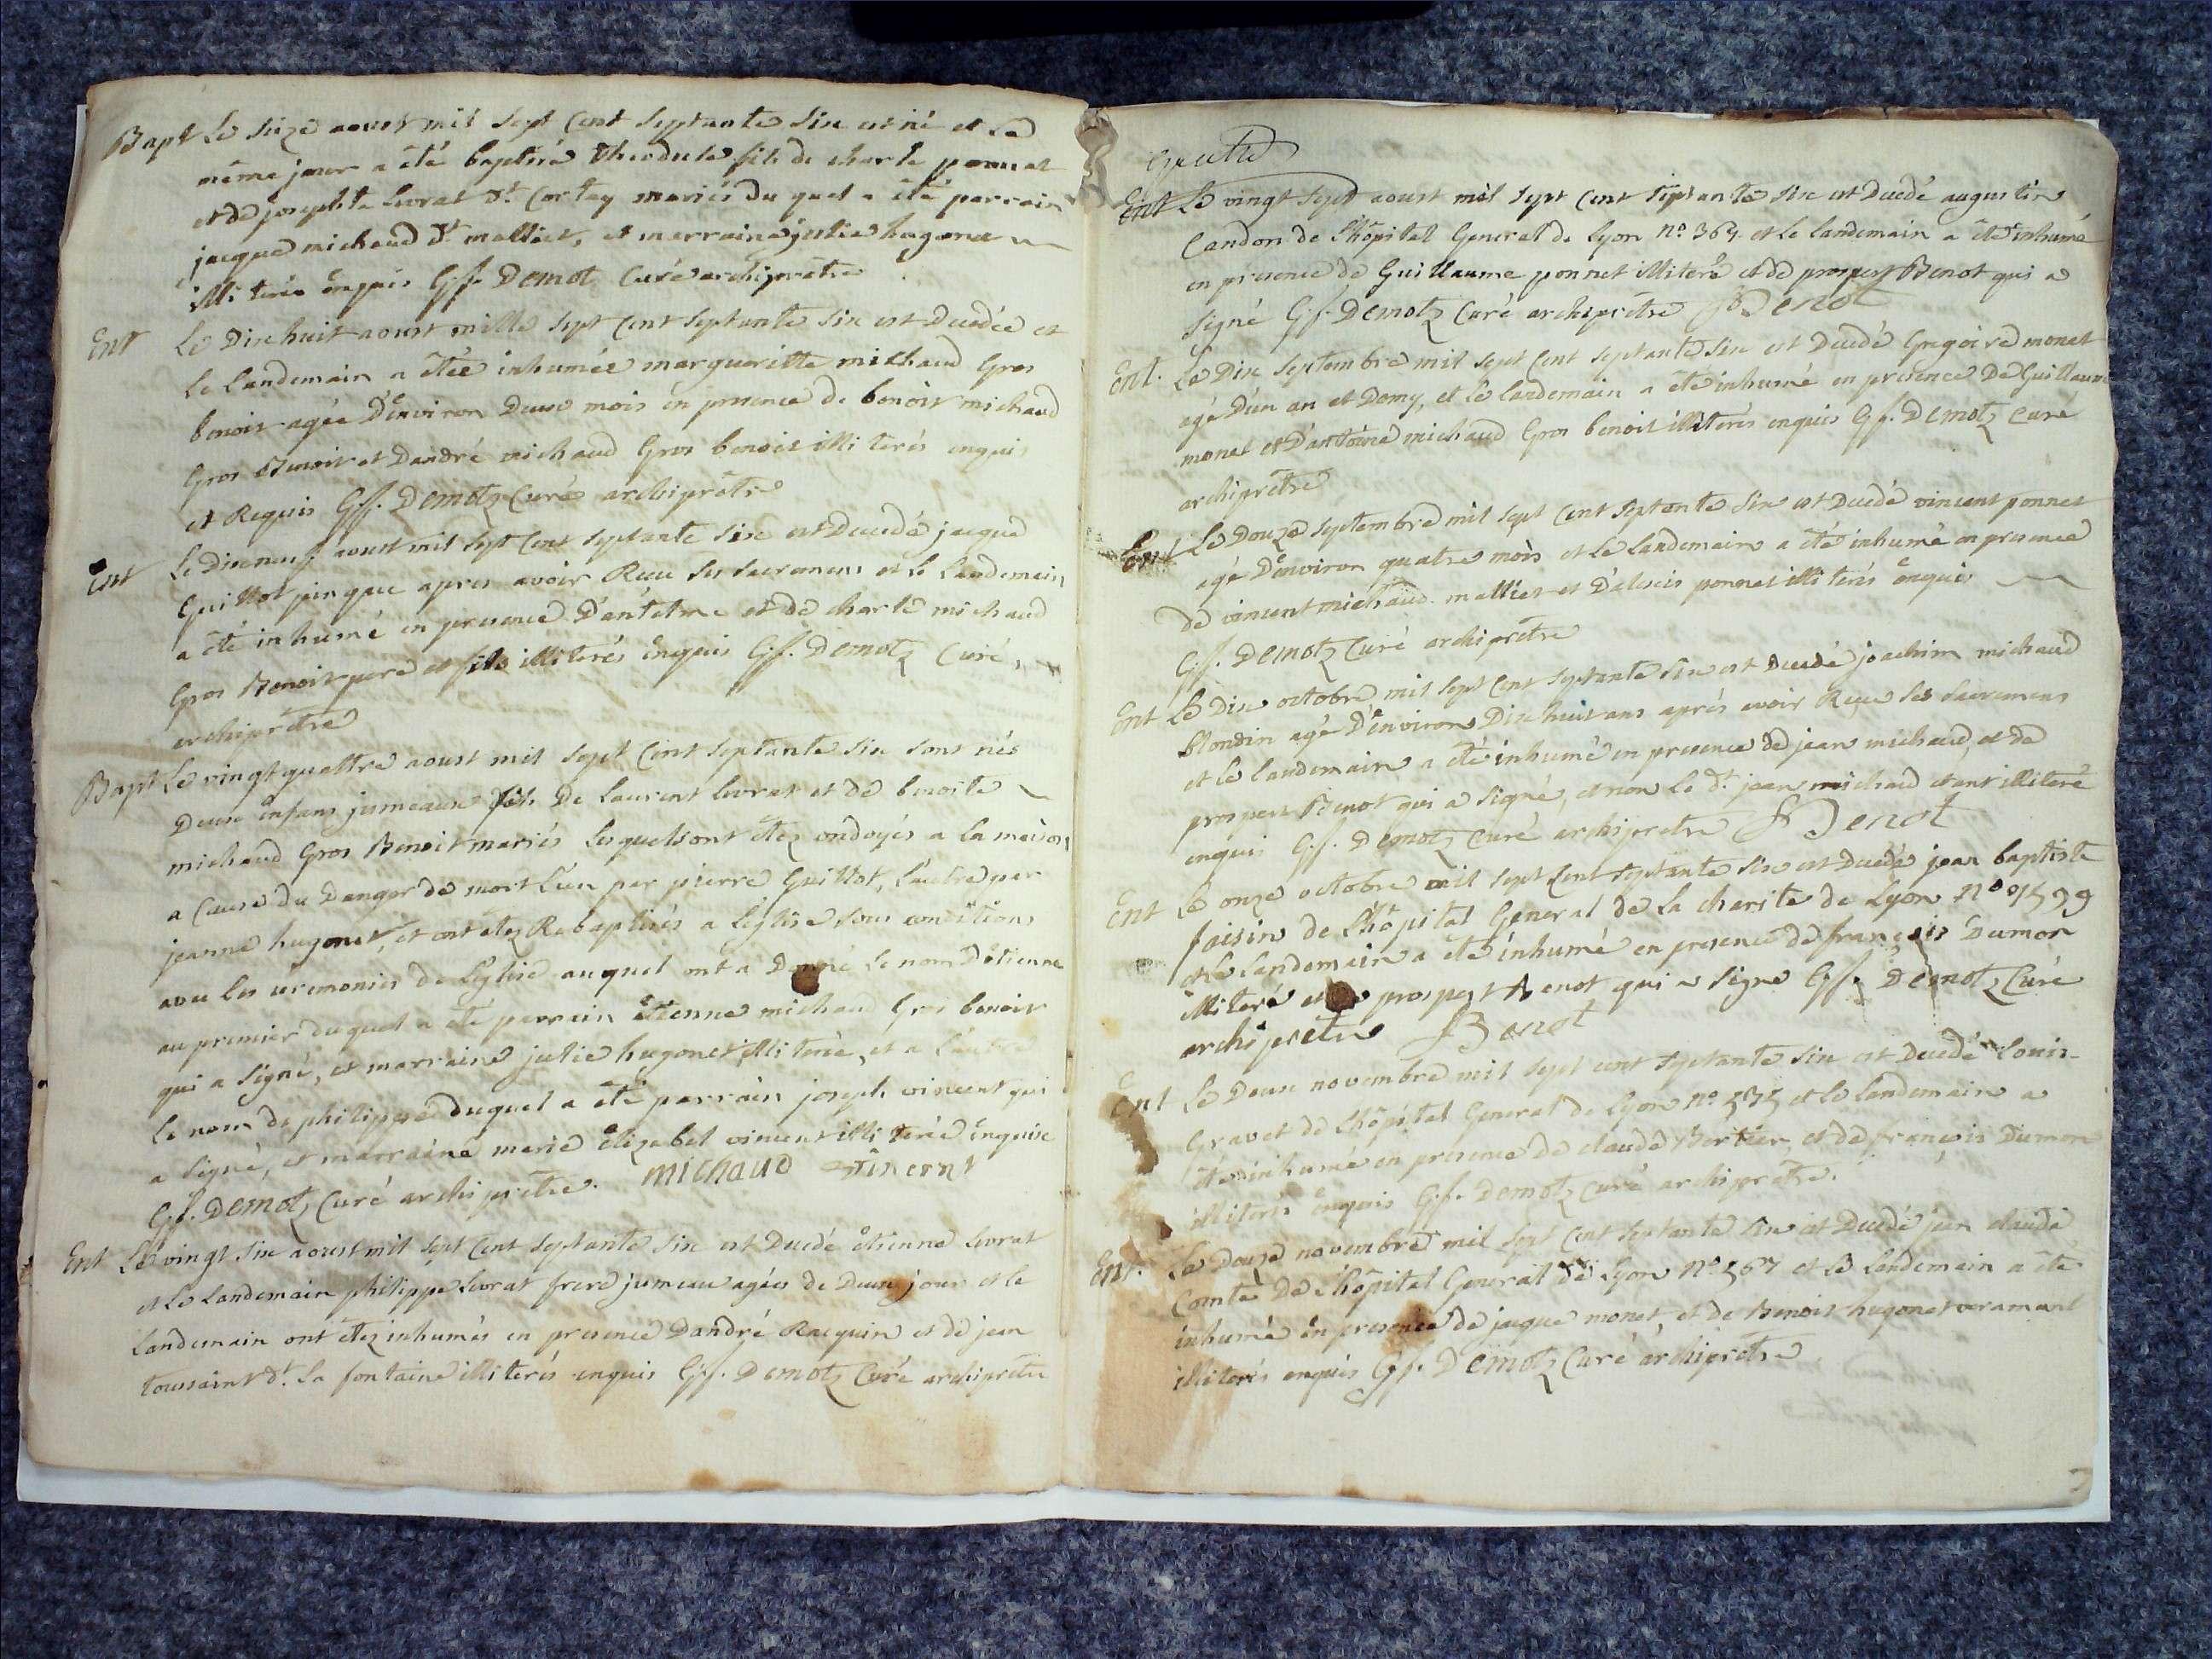 Bapt Le seize aoust mil sept cent septante six est né et le
même jour a été baptisé theodule fils de charle ponnet
et de josephte livrat dt. Cortey mariés du quel a été parrain
jacque michaud dt mallict, et marraine julie hugonet
illiterés enquis Gf. Demotz Curé archiprêtre
Ent Le Dixhuit aoust mille sept cent septante six est Decedée et
le landemain a étée inhumée margueritte michaud Gros
benoit agée D'environ Deux mois en presence de benoit michaud
Gros Benoit et D'andré michaud Gros benoit illiterés enquis
et Requis Gf. Demotz Curé archiprêtre
Ent Le Dixneuf aoust mil sept cent septante six est Decedé jacque
Guillot apres avoir Recu ses sacremens et le landemain
a été inhumé en presence D'antelme et de charle michaud
Gros Benoit pere et fils illiterés enquis Gf. Demotz Curé,
archiprêtre
Bapt Le vingt quattre aoust mil sept cent septante six sont nés
Deux enfans jumeaux fils De laurent livrat et de benoite
michaud Gros Benoit mariés lesquels ont étez ondoyés a la maison
a Cause du Danger de mort l'un par pierre Guillot, l'autre par
jeanne hugonet, et ont étez Rebaptisés a l'eglise sous conditions
avec les ceremonies de l'eglise auquel ont a Donné le nom D'étienne
au premier du quel a été parrain étienne michaud Gros benoit
qui a signé, et marraine julie hugonet illiterée, et a l'autre
le nom de philippe duquel a été parrain joseph vincent qui
a signé, et marraine marie élizabet vincent illiterée enquise
Gf. Demotz Curé archiprêtre. michaud vincent
Ent Le vingt six aoust mil sept cent septante six est Decedé étienne livrat
et le landemain philippe livrat frere jumeau agées de Deux jour et le
landemain ont étez inhumés en presence D'andré Racquin et de jean
toussaint dt. la fontaine illiterés enquis Gf. Demotz Curé archiprêtre
Ent Le vingt sept aoust mil sept cent septante six est Decedé augustin
Candon de l'hôpital General de Lyon no. 364 et le landemain a été inhumé
en presence de Guillaume ponnet illiteré et de prospert Benot qui a
signé Gf. Demotz Curé archiprêtre Benot
Ent. Le Dix septembre mil sept cent septante six est Decedé Gregoire monet
agé D'un an et Demy, et le landemain a été inhumé en presence De Guillaume
monet et D'antoine michaud Gros benoit illiterés enquis Gf. Demotz Curé
archiprêtre
Ent Le Douze septembre mil sept cent septante six est Decedé vincent ponnet
agé D'environ quatre mois et le landemain a été inhumé en presence
de vincent michaud mallict et D'alexis ponnet illiterés enquis
Gf. Demotz Curé archiprêtre
Ent Le Dix octobre mil sept cent septante six est Decedé joachim michaud
blondin agé D'environ Dixhuit ans aprés avoir Reçu ses sacremens
et le landemain a été inhumé en presence de jean michaud, et de
prospert Benot qui a signé, et non le dt. jean michaud etant illiteré
enquis Gf. Demotz Curé archiprêtre Benot
Ent Le onze octobre mil sept cent septante six est Decedé jean baptiste
foisin de l'hôpital General de la charite de Lyon no 1599
et le landemain a été inhumé en presence de françois Dumon
illiteré et de prospert Benot qui a signé Gf. Demotz Curé
archiprêtre Benot
Ent Le Deux novembre mil sept cent septante six est Decedé Louis
Gravet de l'hôpital General de Lyon no. 575 et le landemain a
été inhumé en presence de claude Bertier, et de françois Dumon
illiterés enquis Gf. Demotz Curé archiprêtre.
Ent. Le Douze novembre mil sept cent septante six est Decedé jean claude
Comte De l'hôpital General de Lyon no. 567 et le landemain a été
inhumé en presence de jacque monet, et de Benoit hugonet
illiterés enquis Gf. Demotz Curé archiprêtre